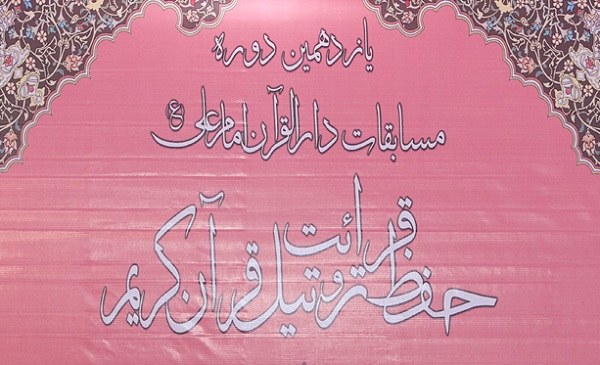 یازدهمین دوره
مسابقات دارالقرآن امام علی (ع)
قرائت
حفظ و ترتیل قرآن کریم